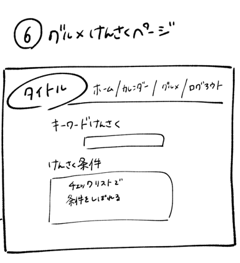 ⑥ グルメけんさくページ
タイトル ホーム/カレンダー/グルメ/ログアウト
キーワードけんさく
けんさく条件
チェックリストで
条件をしぼれる